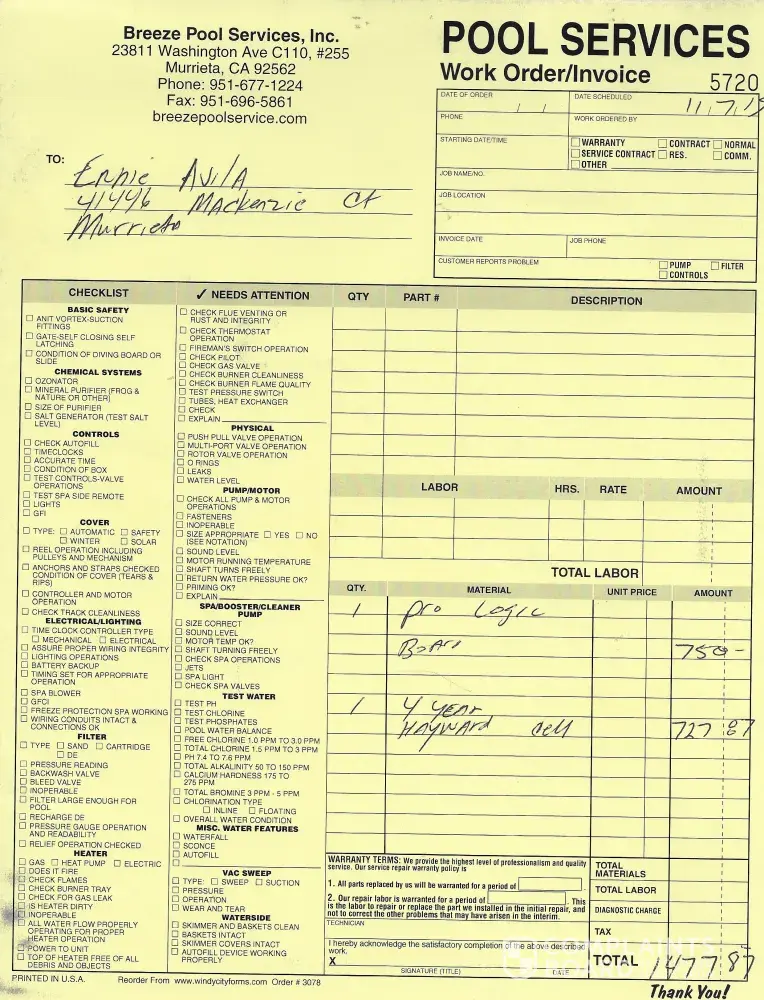 Breeze Pool Services, Inc.
23811 Washington Ave C110, #255
Murrieta, CA 92562
Phone: 951-677-1224
Fax: 951-696-5861
breezepoolservice.com
POOL SERVICES
Work Order/Invoice
5720
DATE OF ORDER
/ /
DATE SCHEDULED
11,7,19
PHONE
WORK ORDERED BY
STARTING DATE/TIME
☐ WARRANTY ☐ CONTRACT ☐ NORMAL
☐ SERVICE CONTRACT ☐ RES. ☐ COMM.
☐ OTHER
JOB NAME/NO.
JOB LOCATION
INVOICE DATE
JOB PHONE
CUSTOMER REPORTS PROBLEM
☐ PUMP ☐ FILTER
☐ CONTROLS
TO:
Ernie Avila
41446 Mackenzie Ct
Murrieta
CHECKLIST
BASIC SAFETY
☐ ANIT VORTEX-SUCTION
FITTINGS
☐ GATE-SELF CLOSING SELF
LATCHING
☐ CONDITION OF DIVING BOARD OR
SLIDE
CHEMICAL SYSTEMS
☐ OZONATOR
☐ MINERAL PURIFIER (FROG &
NATURE OR OTHER)
☐ SIZE OF PURIFIER
☐ SALT GENERATOR (TEST SALT
LEVEL)
CONTROLS
☐ CHECK AUTOFILL
☐ TIMECLOCKS
☐ ACCURATE TIME
☐ CONDITION OF BOX
☐ TEST CONTROLS-VALVE
OPERATIONS
☐ TEST SPA SIDE REMOTE
☐ LIGHTS
☐ GFI
COVER
☐ TYPE: ☐ AUTOMATIC ☐ SAFETY
☐ WINTER ☐ SOLAR
☐ REEL OPERATION INCLUDING
PULLEYS AND MECHANISM
☐ ANCHORS AND STRAPS CHECKED
CONDITION OF COVER (TEARS &
RIPS)
☐ CONTROLLER AND MOTOR
OPERATION
☐ CHECK TRACK CLEANLINESS
ELECTRICAL/LIGHTING
☐ TIME CLOCK CONTROLLER TYPE
☐ MECHANICAL ☐ ELECTRICAL
☐ ASSURE PROPER WIRING INTEGRITY
☐ LIGHTING OPERATIONS
☐ BATTERY BACKUP
☐ TIMING SET FOR APPROPRIATE
OPERATION
☐ SPA BLOWER
☐ GFCI
☐ FREEZE PROTECTION SPA WORKING
☐ WIRING CONDUITS INTACT &
CONNECTIONS OK
FILTER
☐ TYPE ☐ SAND ☐ CARTRIDGE
☐ DE
☐ PRESSURE READING
☐ BACKWASH VALVE
☐ BLEED VALVE
☐ INOPERABLE
☐ FILTER LARGE ENOUGH FOR
POOL
☐ RECHARGE DE
☐ PRESSURE GAUGE OPERATION
AND READABILITY
☐ RELIEF OPERATION CHECKED
HEATER
☐ GAS ☐ HEAT PUMP ☐ ELECTRIC
☐ DOES IT FIRE
☐ CHECK FLAMES
☐ CHECK BURNER TRAY
☐ CHECK FOR GAS LEAK
☐ IS HEATER DIRTY
☐ INOPERABLE
☐ ALL WATER FLOW PROPERLY
OPERATING FOR PROPER
HEATER OPERATION
☐ POWER TO UNIT
☐ TOP OF HEATER FREE OF ALL
DEBRIS AND OBJECTS
✓ NEEDS ATTENTION
☐ CHECK FLUE VENTING OR
RUST AND INTEGRITY
☐ CHECK THERMOSTAT
OPERATION
☐ FIREMAN'S SWITCH OPERATION
☐ CHECK PILOT
☐ CHECK GAS VALVE
☐ CHECK BURNER CLEANLINESS
☐ CHECK BURNER FLAME QUALITY
☐ TEST PRESSURE SWITCH
☐ TUBES, HEAT EXCHANGER
☐ CHECK
☐ EXPLAIN
PHYSICAL
☐ PUSH PULL VALVE OPERATION
☐ MULTI-PORT VALVE OPERATION
☐ ROTOR VALVE OPERATION
☐ O RINGS
☐ LEAKS
☐ WATER LEVEL
PUMP/MOTOR
☐ CHECK ALL PUMP & MOTOR
OPERATIONS
☐ FASTENERS
☐ INOPERABLE
☐ SIZE APPROPRIATE ☐ YES ☐ NO
(SEE NOTATION)
☐ SOUND LEVEL
☐ MOTOR RUNNING TEMPERATURE
☐ SHAFT TURNS FREELY
☐ RETURN WATER PRESSURE OK?
☐ PRIMING OK?
☐ EXPLAIN
SPA/BOOSTER/CLEANER
PUMP
☐ SIZE CORRECT
☐ SOUND LEVEL
☐ MOTOR TEMP OK?
☐ SHAFT TURNING FREELY
☐ CHECK SPA OPERATIONS
☐ JETS
☐ SPA LIGHT
☐ CHECK SPA VALVES
TEST WATER
☐ TEST PH
☐ TEST CHLORINE
☐ TEST PHOSPHATES
☐ POOL WATER BALANCE
☐ FREE CHLORINE 1.0 PPM TO 3.0 PPM
☐ TOTAL CHLORINE 1.5 PPM TO 3 PPM
☐ PH 7.4 TO 7.6 PPM
☐ TOTAL ALKALINITY 50 TO 150 PPM
☐ CALCIUM HARDNESS 175 TO
275 PPM
☐ TOTAL BROMINE 3 PPM - 5 PPM
☐ CHLORINATION TYPE
☐ INLINE ☐ FLOATING
☐ OVERALL WATER CONDITION
MISC. WATER FEATURES
☐ WATERFALL
☐ SCONCE
☐ AUTOFILL
☐
VAC SWEEP
☐ TYPE: ☐ SWEEP ☐ SUCTION
☐ PRESSURE
☐ OPERATION
☐ WEAR AND TEAR
WATERSIDE
☐ SKIMMER AND BASKETS CLEAN
☐ BASKETS INTACT
☐ SKIMMER COVERS INTACT
☐ AUTOFILL DEVICE WORKING
PROPERLY
QTY PART # DESCRIPTION
LABOR HRS. RATE AMOUNT
TOTAL LABOR
QTY. MATERIAL UNIT PRICE AMOUNT
1 pro Logic
Board 750-
1 4 year
HAYWARD cell 727 87
WARRANTY TERMS: We provide the highest level of professionalism and quality
service. Our service repair warranty policy is
1. All parts replaced by us will be warranted for a period of
2. Our repair labor is warranted for a period of . This
is the labor to repair or replace the part we installed in the initial repair, and
not to correct the other problems that may have arisen in the interim.
TECHNICIAN
I hereby acknowledge the satisfactory completion of the above described
work.
X
SIGNATURE (TITLE) DATE
TOTAL
MATERIALS
TOTAL LABOR
DIAGNOSTIC CHARGE
TAX
TOTAL 1477 87
COMPLAINTS
BOARD
PRINTED IN U.S.A.
Reorder From www.windycityforms.com Order # 3078
Thank You!